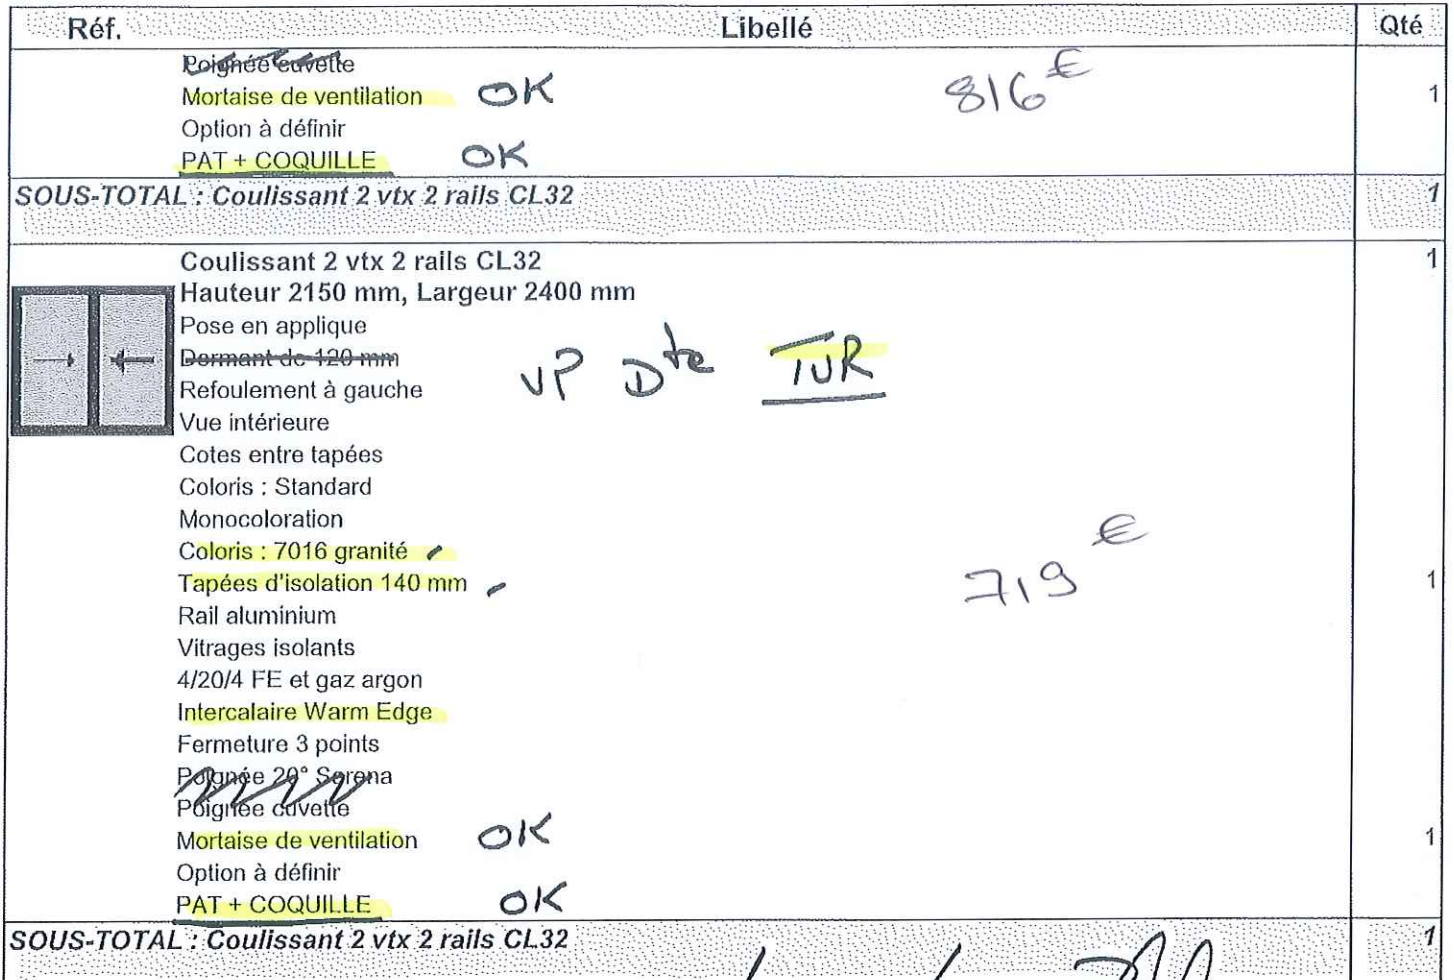 Réf. Libellé Qté
Poignée cuvette
Mortaise de ventilation OK 816 € 1
Option à définir
PAT + COQUILLE OK
SOUS-TOTAL : Coulissant 2 vtx 2 rails CL32 1
Coulissant 2 vtx 2 rails CL32 1
Hauteur 2150 mm, Largeur 2400 mm
Pose en applique
Dormant de 120 mm
Refoulement à gauche VP Dte TUR
Vue intérieure
Cotes entre tapées
Coloris : Standard
Monocoloration
Coloris : 7016 granité
Tapées d'isolation 140 mm 719 € 1
Rail aluminium
Vitrages isolants
4/20/4 FE et gaz argon
Intercalaire Warm Edge
Fermeture 3 points
Poignée 20° Sorena
Poignée cuvette
Mortaise de ventilation OK 1
Option à définir
PAT + COQUILLE OK
SOUS-TOTAL : Coulissant 2 vtx 2 rails CL32 1